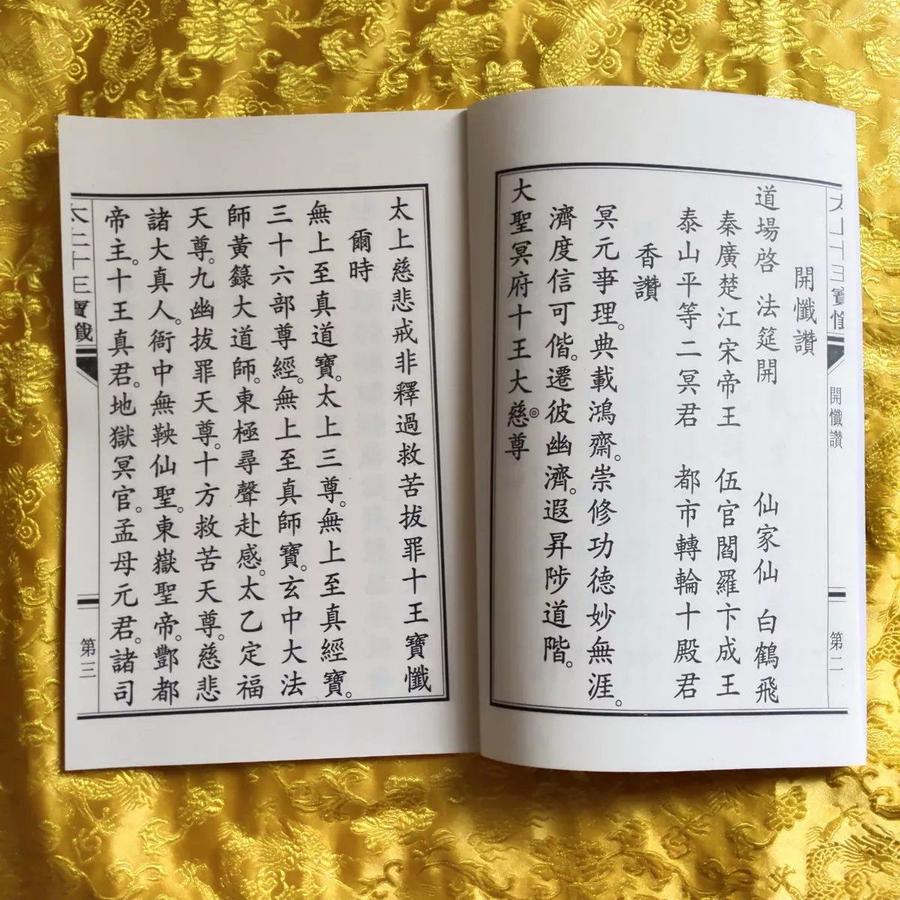 太上十三寶懺
開懺讚
第二
開懺讚
道場啓 法筵開 仙家仙 白鶴飛
秦廣楚江宋帝王 伍官閻羅卞成王
泰山平等二冥君 都市轉輪十殿君
香讚
冥元事理。典載鴻齋。崇修功德妙無涯。
濟度信可偕。遷彼幽濟。遐昇陟道階。
大聖冥府十王大慈尊
太上慈悲戒非釋過救苦拔罪十王寶懺
爾時
無上至真道寶。太上三尊。無上至真經寶。
三十六部尊經。無上至真師寶。玄中大法
師黃籙大道師。東極尋聲赴感。太乙定福
天尊。九幽拔罪天尊。十方救苦天尊。慈悲
諸大真人。衙中無鞅仙聖。東嶽聖帝。酆都
帝主。十王真君。地獄冥官。孟母元君。諸司
太上十三寶懺
第三